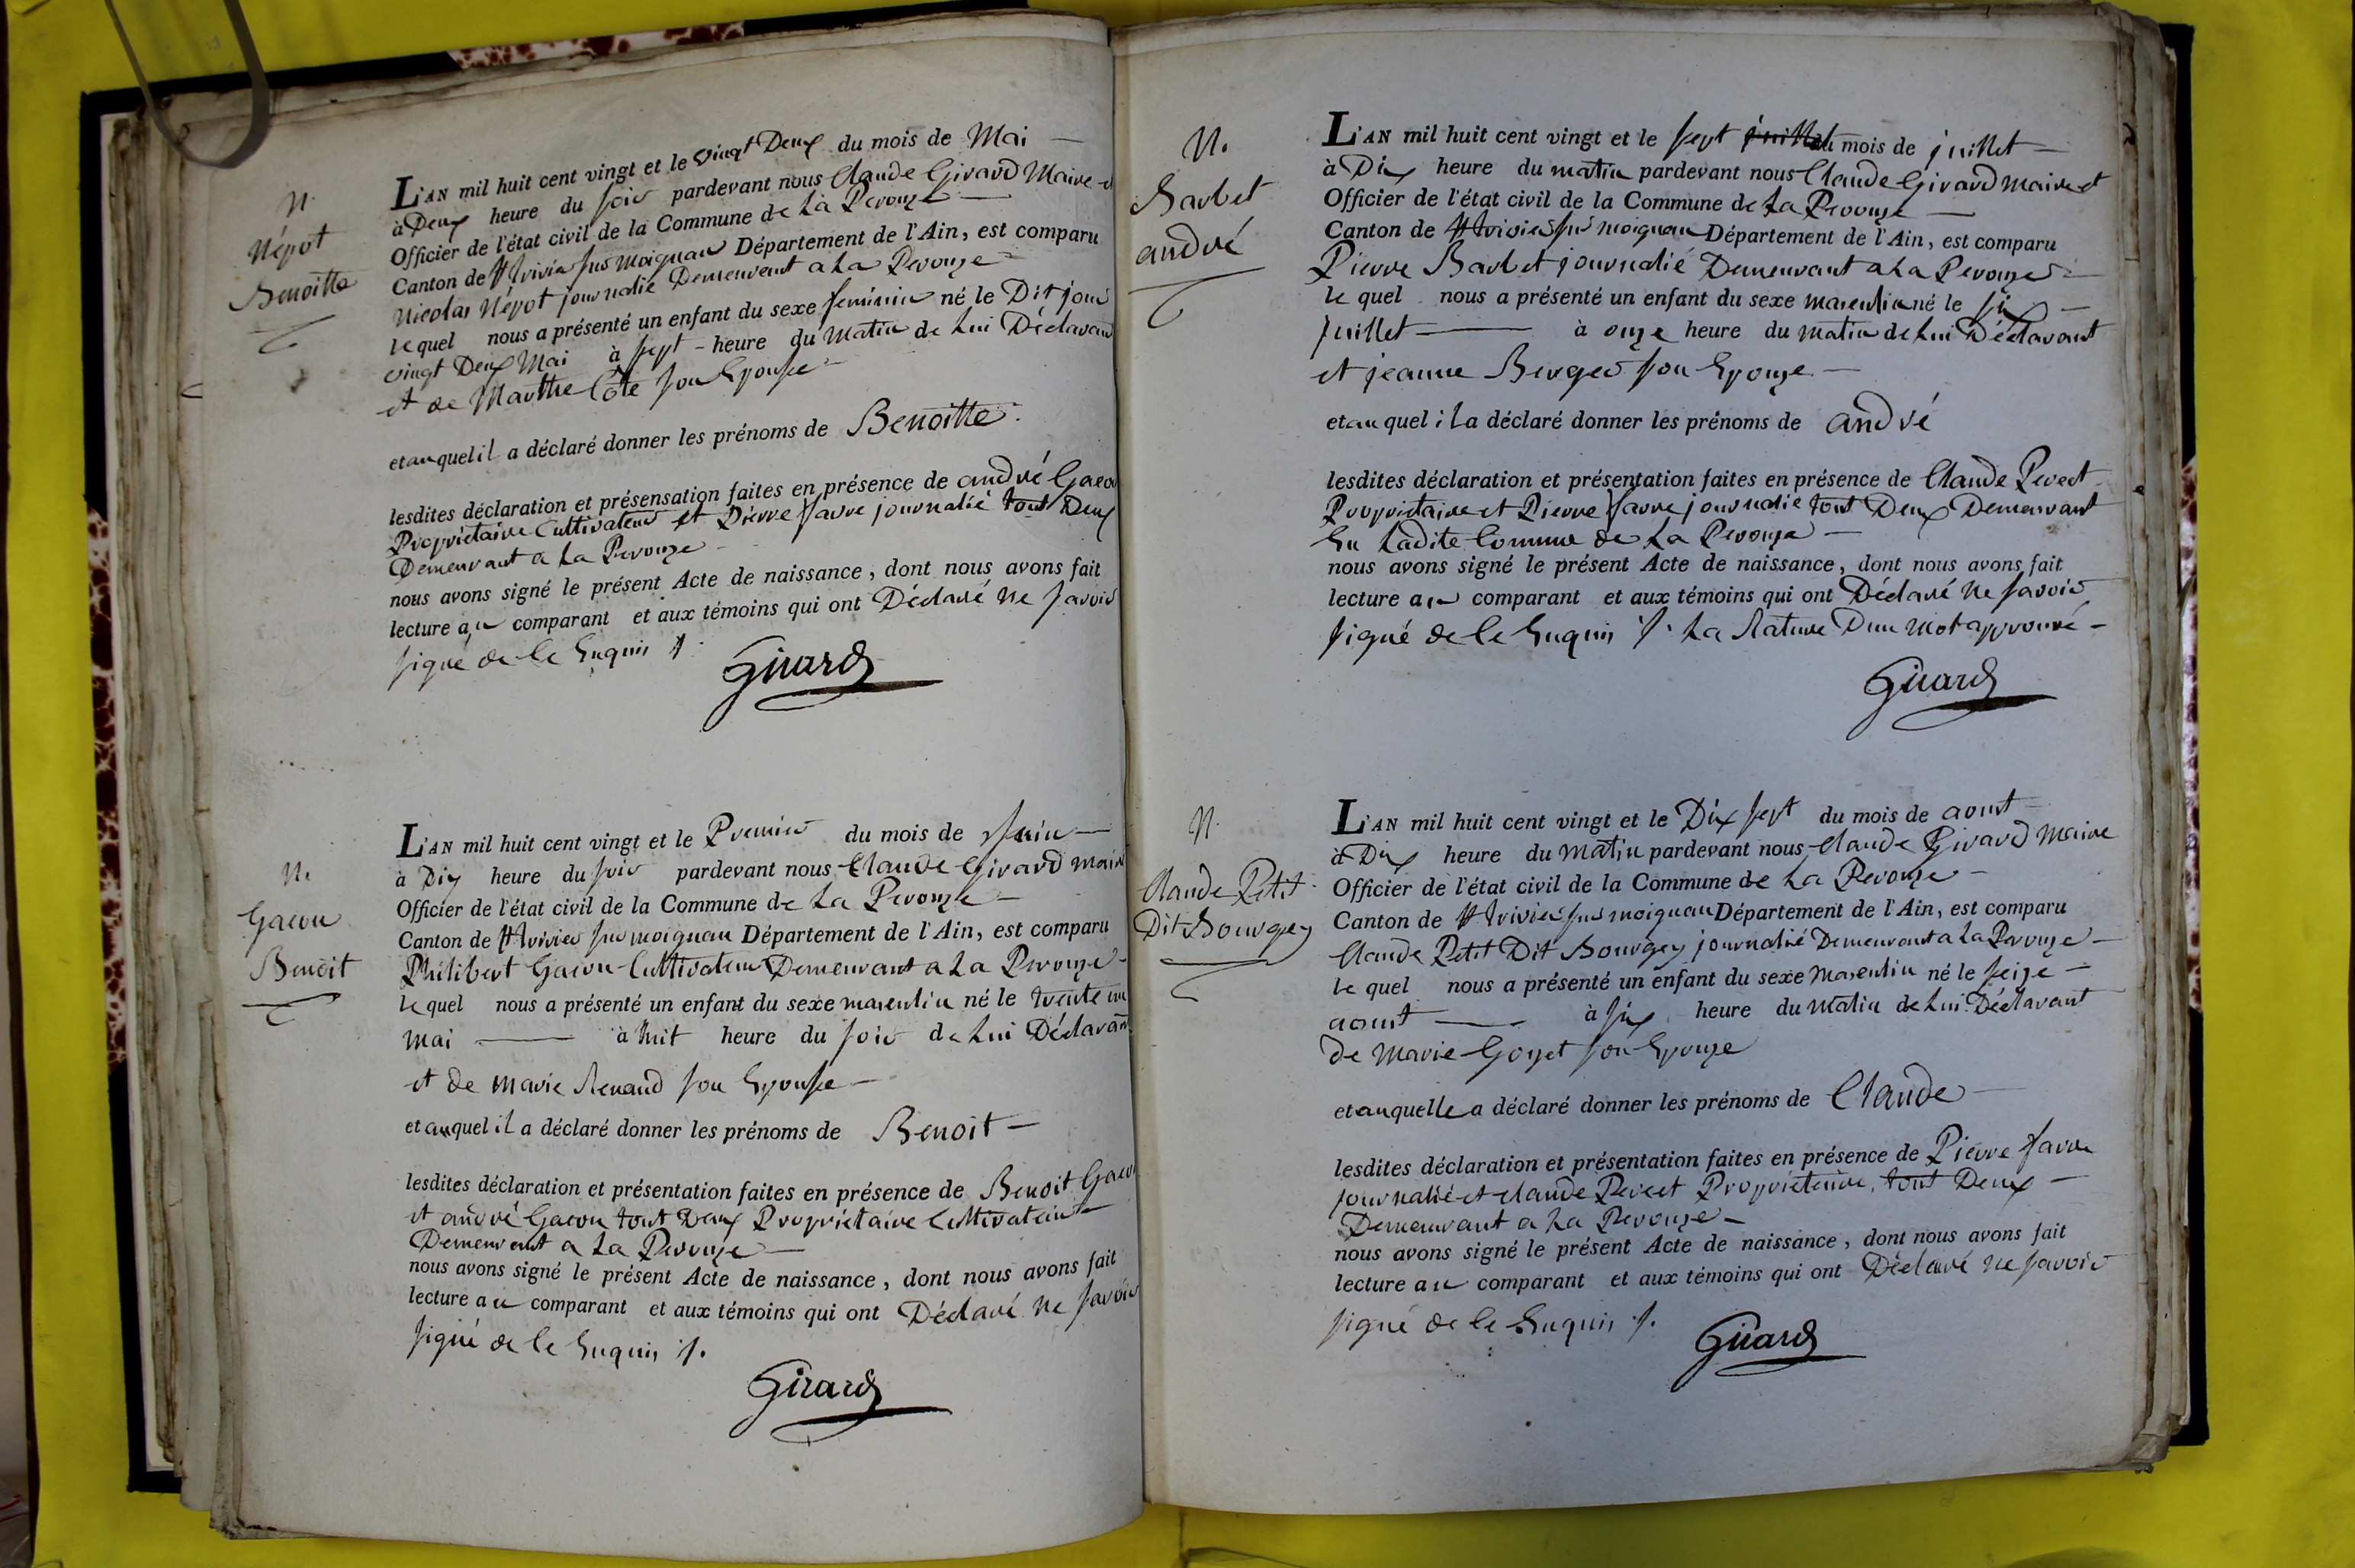 N.
Népot
Benoitte
L'AN mil huit cent vingt et le vingt Deux du mois de Mai
à Deux heure du soir pardevant nous Claude Girard Maire et
Officier de l'état civil de la Commune de La Perouze
Canton de St trivier sur moignan Département de l'Ain, est comparu
Nicolas Népot journalié Demeurent a La Perouze
lequel nous a présenté un enfant du sexe feminin né le Dit jour
vingt Deux Mai à sept heure du matin de Lui Déclarant
et de Marthe Côte son Epouse
et auquel il a déclaré donner les prénoms de Benoitte.
lesdites déclaration et présensation faites en présence de andré Gacon
Propriétaire Cultivateur et Pierre favre journalié tout Deux
Demeurant a La Perouze
nous avons signé le présent Acte de naissance, dont nous avons fait
lecture au comparant et aux témoins qui ont Déclaré ne savoir
signé de le Enquis
Girard
N.
Gacon
Benoit
L'AN mil huit cent vingt et le Premier du mois de Juin
à Dix heure du soir pardevant nous Claude Girard maire
Officier de l'état civil de la Commune de La Perouze
Canton de St trivier sur moignan Département de l'Ain, est comparu
Philibert Gacon Cultivateur Demeurant a La Perouze
lequel nous a présenté un enfant du sexe masculin né le trente un
mai à huit heure du soir de Lui Déclarant
et de marie Renaud son Epouse
et auquel il a déclaré donner les prénoms de Benoit
lesdites déclaration et présentation faites en présence de Benoit Gacon
et andré Gacon tout Deux Propriétaire Cultivateur
Demeurant a La Perouze
nous avons signé le présent Acte de naissance, dont nous avons fait
lecture au comparant et aux témoins qui ont Déclaré ne savoir
signé de le Enquis
Girard
N.
Barbet
andré
L'AN mil huit cent vingt et le sept juillet du mois de juillet
à Dix heure du matin pardevant nous Claude Girard maire et
Officier de l'état civil de la Commune de La Perouze
Canton de St trivier sur moignan Département de l'Ain, est comparu
Pierre Barbet journalié Demeurant a La Perouze
lequel nous a présenté un enfant du sexe masculin né le six
juillet à onze heure du matin de Lui Déclarant
et jeanne Berger son Epouze
et auquel il a déclaré donner les prénoms de andré
lesdites déclaration et présentation faites en présence de Claude Perect
Propriétaire et Pierre favre journalié tout Deux Demeurant
En Ladite Commune de La Perouze
nous avons signé le présent Acte de naissance, dont nous avons fait
lecture au comparant et aux témoins qui ont Déclaré ne savoir
signé de le Enquis La Rature Dun mot approuvé
Girard
N.
Claude Petit
Dit Bourgey
L'AN mil huit cent vingt et le Dix sept du mois de aoust
à Dix heure du matin pardevant nous Claude Girard Maire
Officier de l'état civil de la Commune de La Perouze
Canton de St trivier sur moignan Département de l'Ain, est comparu
Claude Petit Dit Bourgey journalié Demeurant a La Perouze
lequel nous a présenté un enfant du sexe masculin né le seize
aoust à six heure du matin de Lui Déclarant
De Marie Goyet son Epouze
et auquelle a déclaré donner les prénoms de Claude
lesdites déclaration et présentation faites en présence de Pierre favre
journalié et Claude Perect Propriétaire, tout Deux
Demeurant a La Perouze
nous avons signé le présent Acte de naissance, dont nous avons fait
lecture au comparant et aux témoins qui ont Déclaré ne savoir
signé de le Enquis
Girard